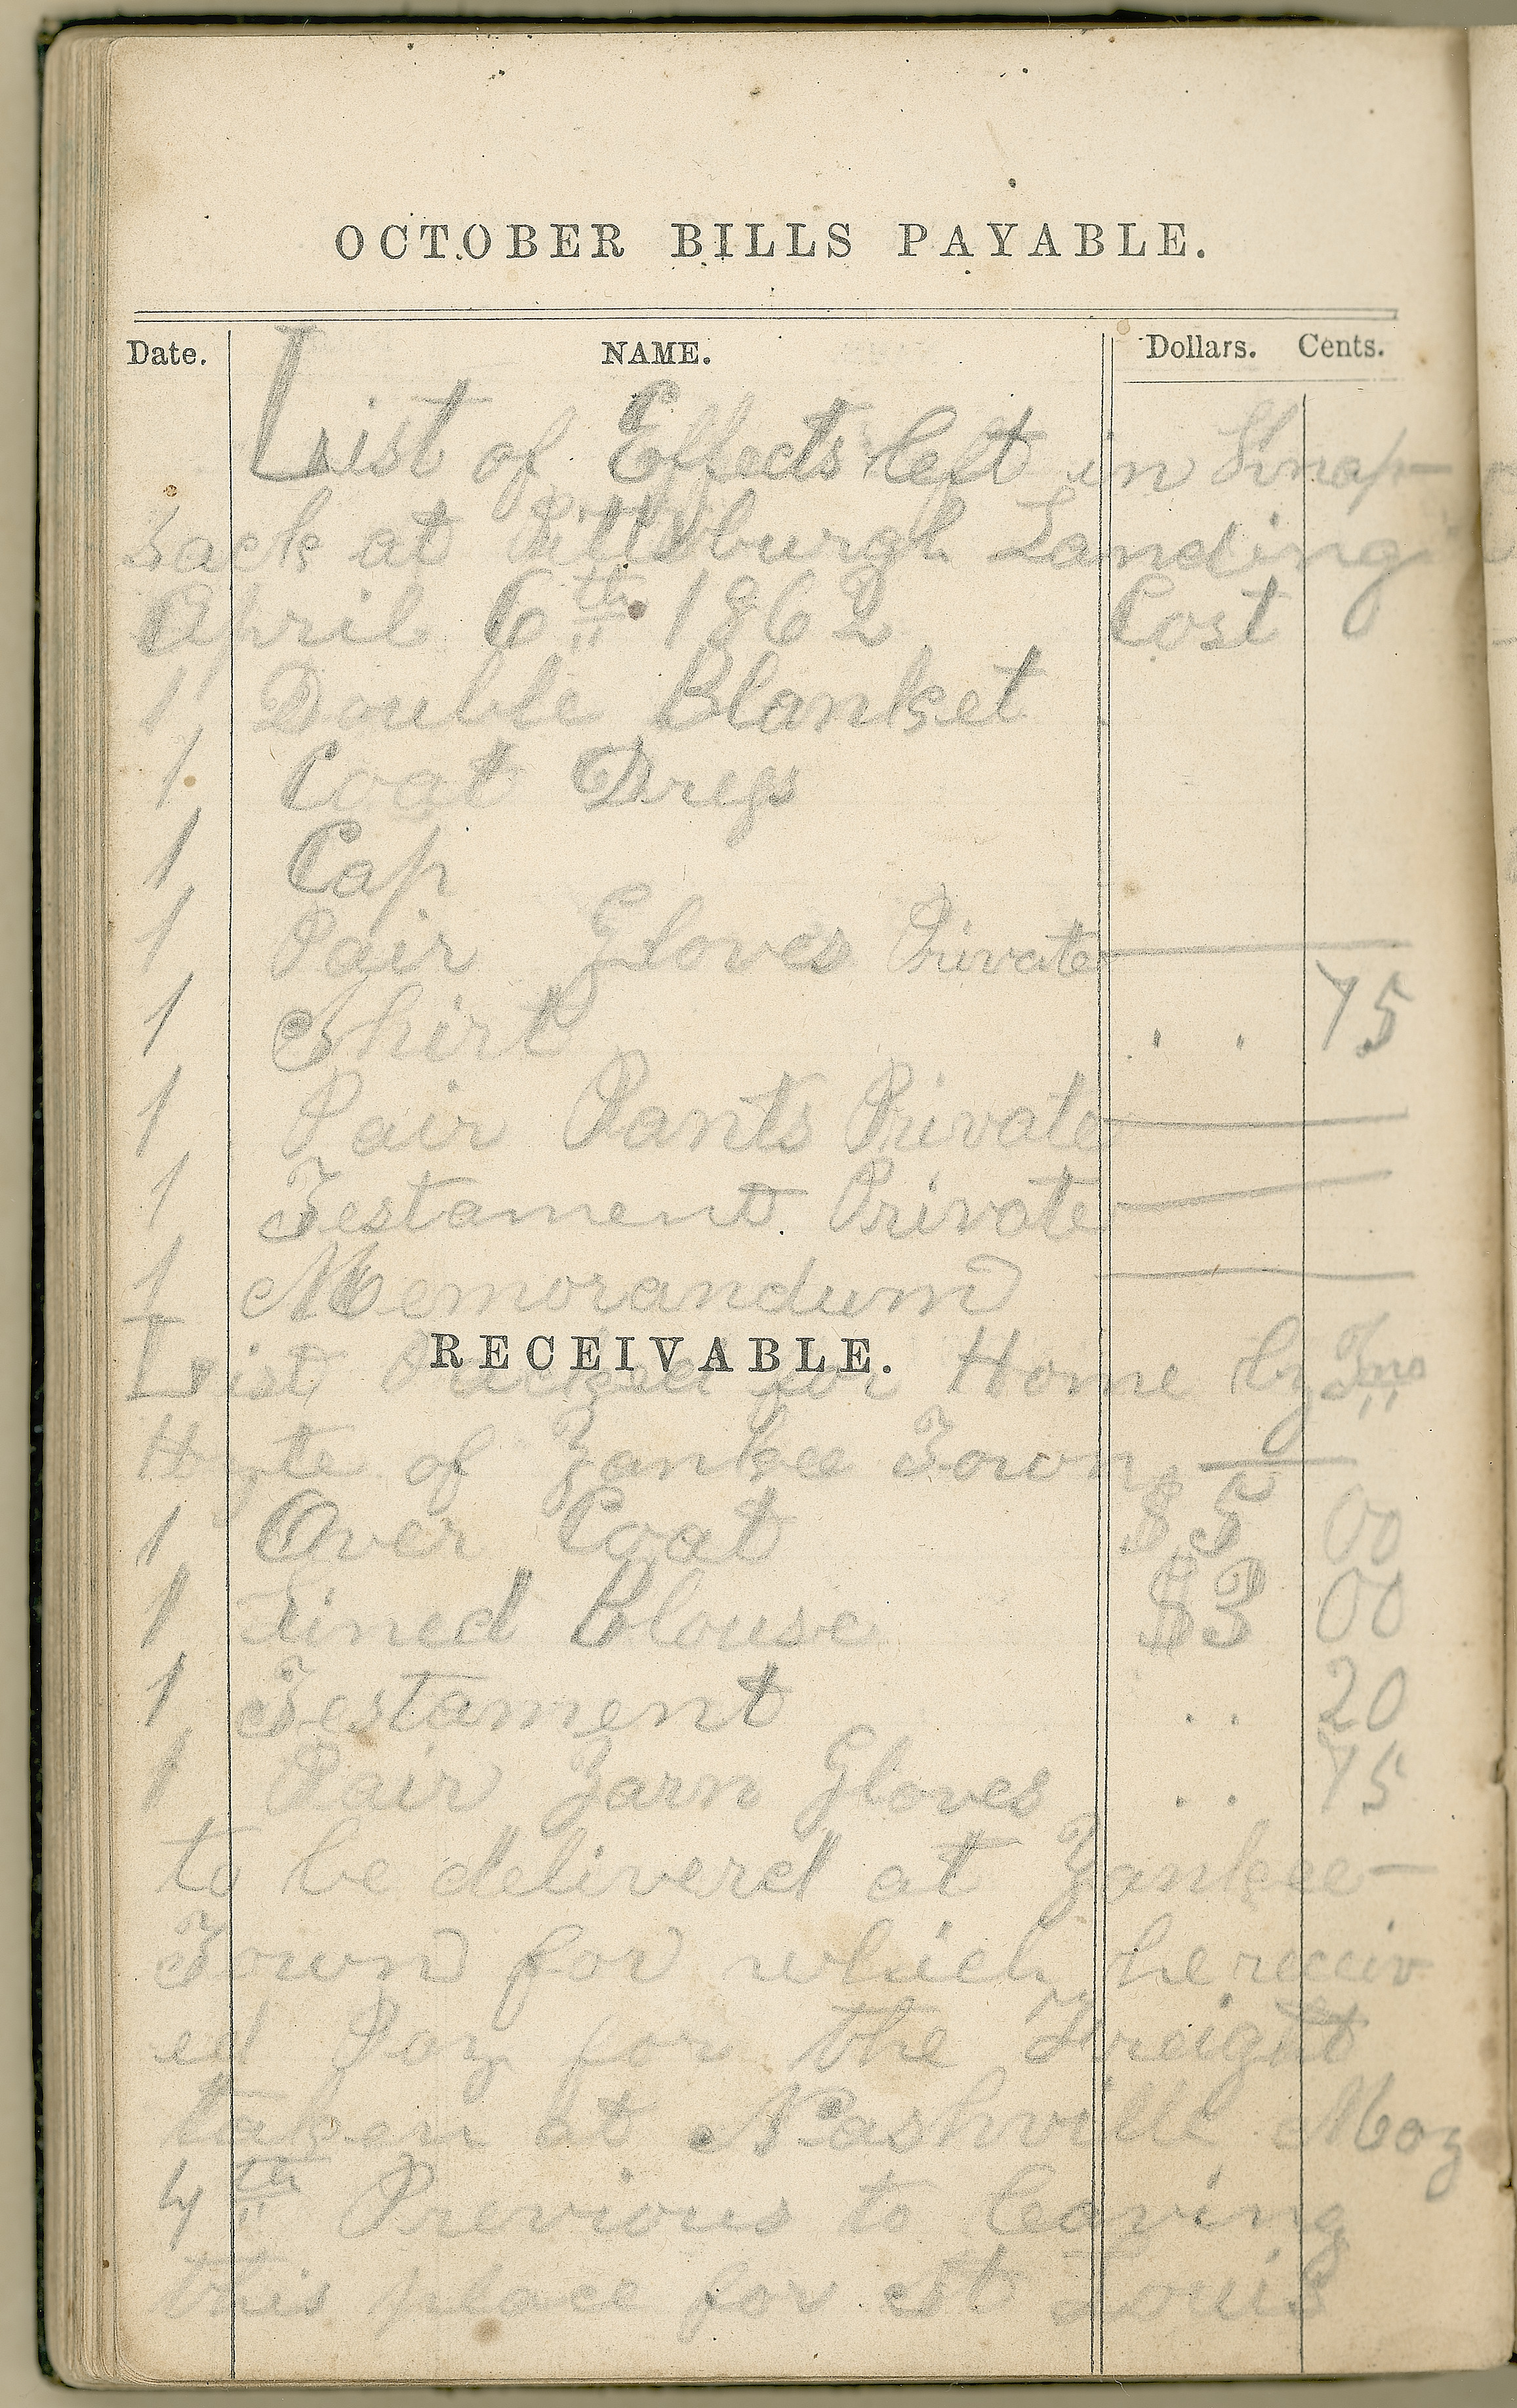 OCTOBER BILLS PAYABLE.
Date. NAME. Dollars. Cents.
List of Effects left in Knap-
sack at Pittsburgh Landing
April 6th 1862 Cost
1 Double Blanket
1 Coat Dress
1 Cap
1 Pair Gloves Private —
1 Shirt . . 75
1 Pair Pants Private —
1 Testament Private —
1 Memorandum —
RECEIVABLE.
List Packed for Home by Jno
Hyte of Yankee Town —
1 Over Coat $5 00
1 Lined Blouse $3 00
1 Testament . . 20
1 Pair Yarn Gloves . . 75
to be deliverd at Yankee-
Town for which he receiv
ed Pay for the Freight
taken at Nashville May
4th Previous to leaving
this place for St Louis